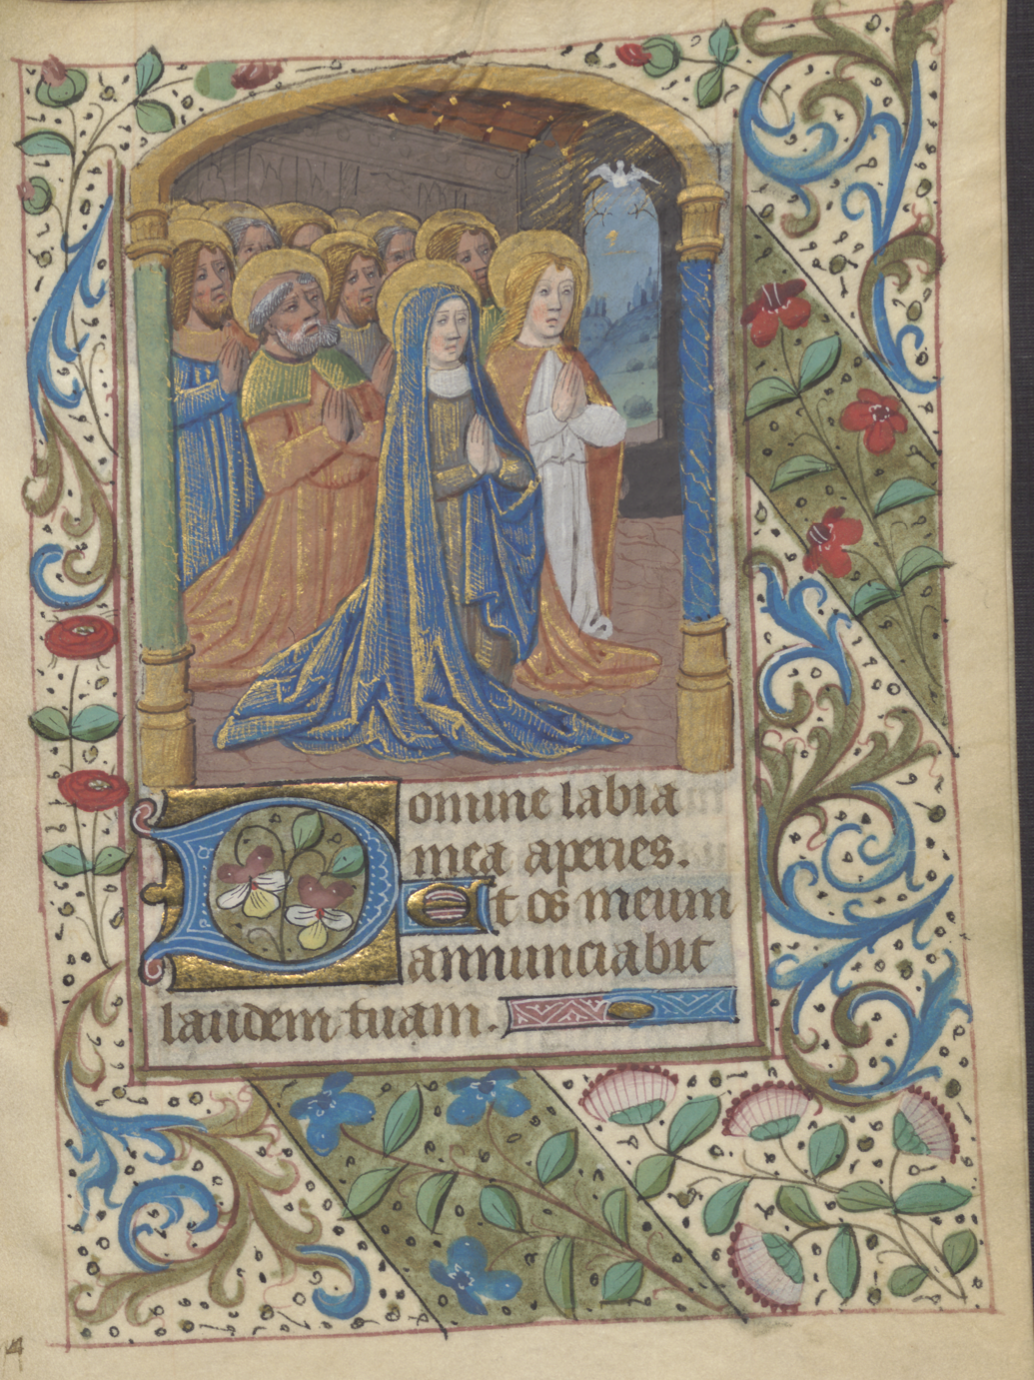 Domine labia
mea aperies.
Et os meum
annunciabit
laudem tuam.